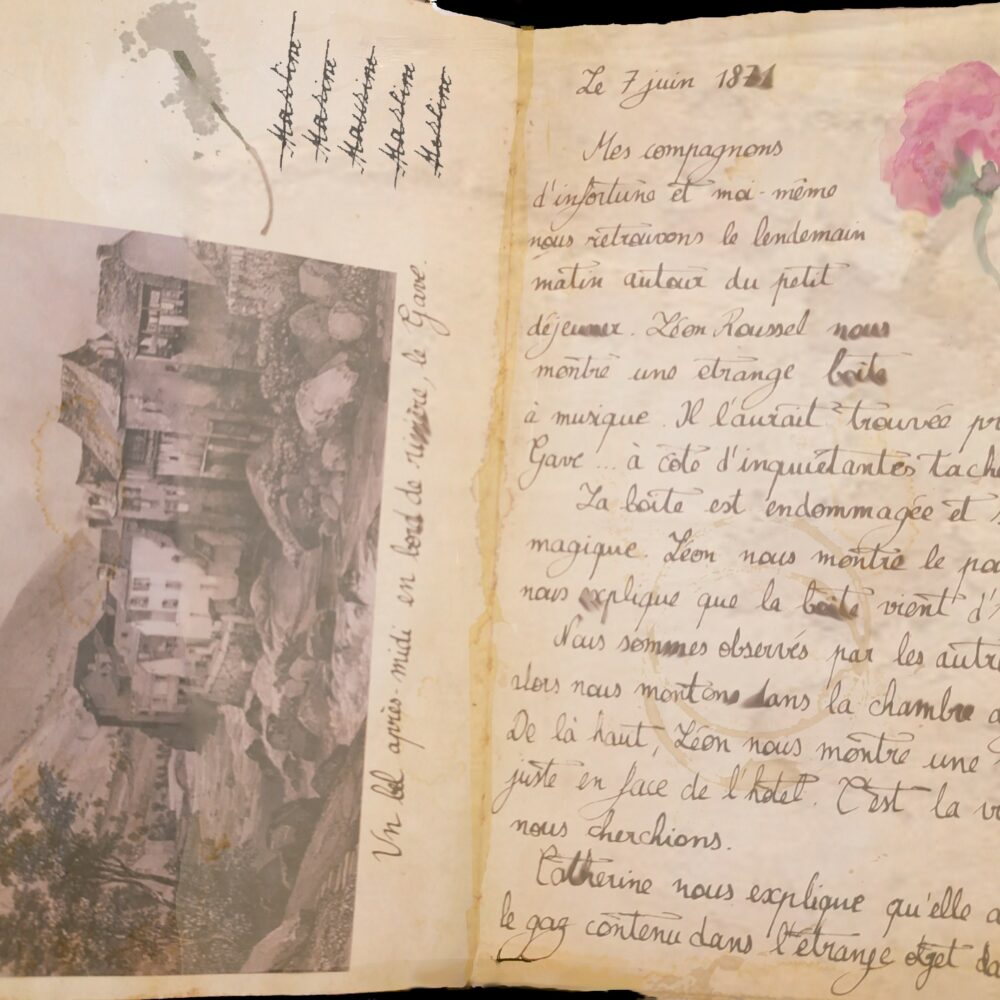 Un bel après-midi en bord de rivière, le Gave.
Le 7 juin 1871
Mes compagnons
d'infortune et moi-même
nous retrouvons le lendemain
matin autour du petit
déjeuner. Léon Roussel nous
montre une étrange boîte
à musique. Il l'aurait trouvée pr
Gave... à côté d'inquiétantes tache
La boîte est endommagée et
magique. Léon nous montre le po
nous explique que la boîte vient d'
Nous sommes observés par les autre
alors nous montons dans la chambre
De là haut, Léon nous montre une
juste en face de l'hôtel. C'est la
nous cherchions.
Catherine nous explique qu'elle a
le gaz contenu dans l'étrange objet da